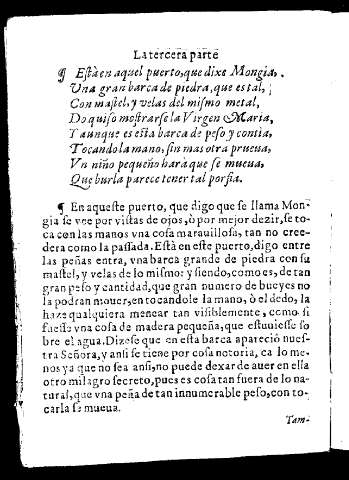 La tercera parte
¶ Està en aquel puerto, que dixe Mongia,
Una gran barca de piedra, que es tal,
Con mastel, y velas del mismo metal,
Do quiso mostrarse la Virgen Maria,
Y aunque es esta barca de peso y contia,
Tocando la mano, sin mas otra prueua,
Un niño pequeño harà que se mueua,
Que burla parece tener tal porfia.
¶ En aqueste puerto, que digo que se llama Mon
gia se vee por vistas de ojos, ò por mejor dezir, se to-
ca con las manos vna cosa marauillosa, tan no cree-
dera como la passada. Està en este puerto, digo entre
las peñas entra, vna barca grande de piedra con su
mastel, y velas de lo mismo: y siendo, como es, de tan
gran peso y cantidad, que gran numero de bueyes no
la podran mouer, en tocandole la mano, ò el dedo, la
haze qualquiera menear tan visiblemente, como si
fuesse vna cosa de madera pequeña, que estuuiesse so
bre el agua. Dizese que en esta barca apareciò nues-
tra Señora, y ansi se tiene por cosa notoria, ca lo me-
nos ya que no sea ansi, no puede dexar de auer en ella
otro milagro secreto, pues es cosa tan fuera de lo na-
tural, que vna peña de tan innumerable peso, con to-
carla se mueua.
Tam-